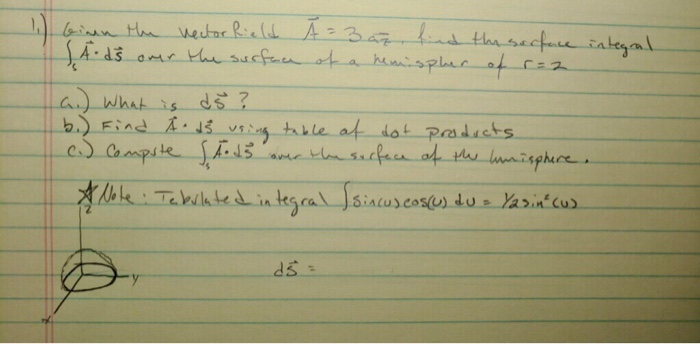 1.) Given the vector field A⃗ = 3 a_z, find the surface integral
∫_s A⃗·ds⃗ over the surface of a hemispher of r=2
a.) What is ds⃗ ?
b.) Find A⃗·ds⃗ using table of dot products
c.) Compute ∫_s A⃗·ds⃗ over the surface of the hemisphere.
☆ Note: Tabulated integral ∫sin(u)cos(u) du = 1/2 sin²(u)
z
ds⃗ =
y
x